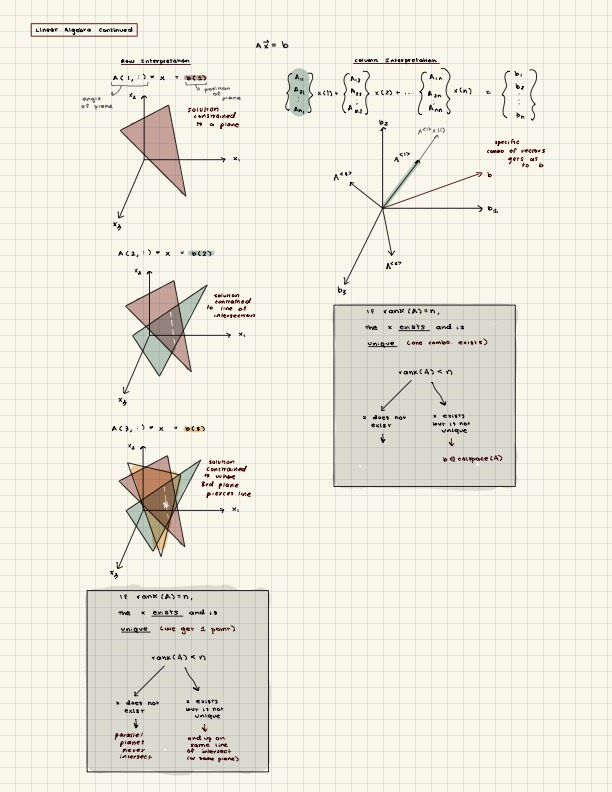 Linear Algebra Continued
A x = b
Row Interpretation
A(1, :) * x = b(1)
angle of plane
position of plane
x2
solution
constrained
to a plane
x1
x3
A(2, :) * x = b(2)
x2
solution
constrained
to line of
intersection
x1
x3
A(3, :) * x = b(3)
x2
solution
constrained
to where
3rd plane
pierces line
x1
x3
if rank(A)=n,
the x exists and is
unique (we get 1 point)
rank(A) < n
x does not
exist
x exists
but is not
unique
parallel
planes
never
intersect
end up on
same line
of intersect
(or same plane)
Column Interpretation
{A11 A21 : An1} x(1) + {A12 A22 : An2} x(2) + ... {A1n A2n : Ann} x(n) = {b1 b2 : bn}
b2
A<1>x(1)
A<1>
specific
combo of vectors
gets us
to b
A<3>
b
b1
A<2>
b3
if rank(A)=n,
the x exists and is
unique (one combo. exists)
rank(A) < n
x does not
exist
x exists
but is not
unique
b ∈ colspace(A)